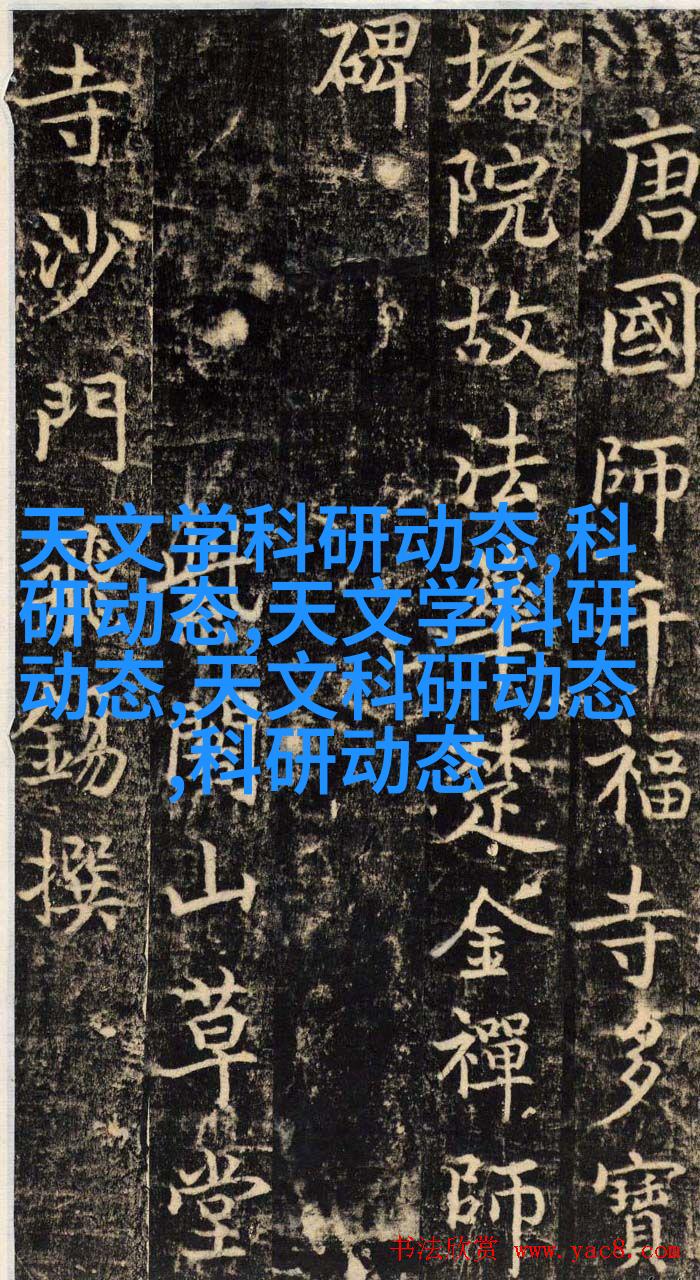 唐國師千福寺多寶
塔院故法華楚金禪師
碑
紫閣山草堂
寺沙門飛錫撰
天文学科研动态,科
研动态,天文学科研
动态,天文科研动态
,科研动态
书法欣赏 www.yac8.com